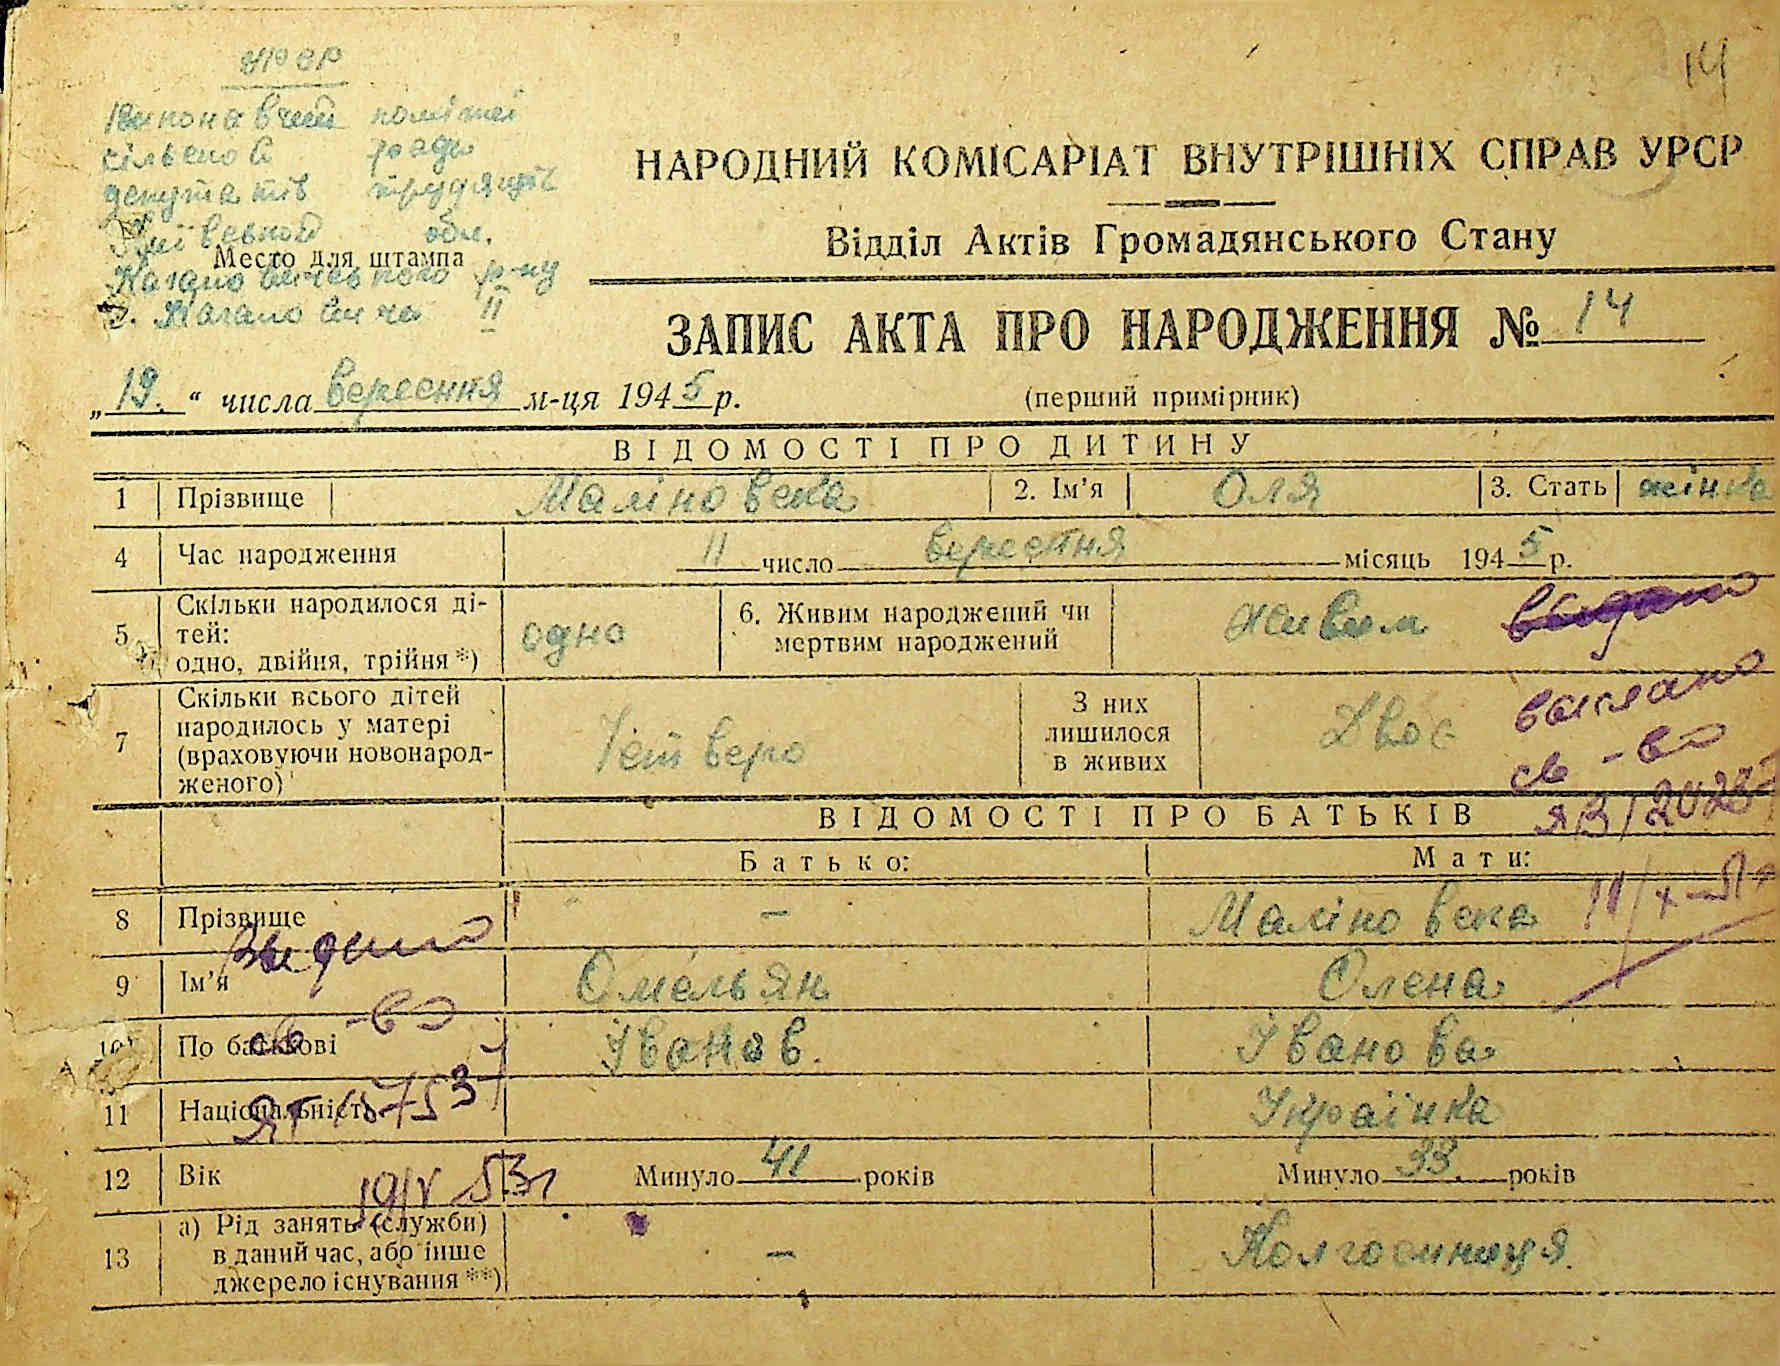 УРСР
14
Виконавчий комітет
сільської ради
депутатів трудящих
Київської обл.
Место для штампа
Кагановичевського р-ну
с. Кагановича II
НАРОДНИЙ КОМІСАРІАТ ВНУТРІШНІХ СПРАВ УРСР
Відділ Актів Громадянського Стану
ЗАПИС АКТА ПРО НАРОДЖЕННЯ № 14
„19.“ числа вересння м-ця 1945 р.
(перший примірник)
ВІДОМОСТІ ПРО ДИТИНУ
1 Прізвище Маліновска 2. Ім'я Оля 3. Стать жінка
4 Час народження 11 число верестня місяць 1945 р.
5 Скільки народилося дітей: одно, двійня, трійня*) одно 6. Живим народжений чи мертвим народжений Живим
выдано
7 Скільки всього дітей народилось у матері (враховуючи новонародженого) Четверо З них лишилося в живих Двоє
выслано
св-во
ВІДОМОСТІ ПРО БАТЬКІВ
Батько: Мати:
8 Прізвище — Маліновска
Выдано
9 Ім'я Омельян Олена
св-во
10 По батькові Іванов. Іванова
11 Національність Українка
12 Вік Минуло 41 років Минуло 33 років
19/V 53г
13 а) Рід занять (служби) в даний час, або інше джерело існування**) — Колгосниця.